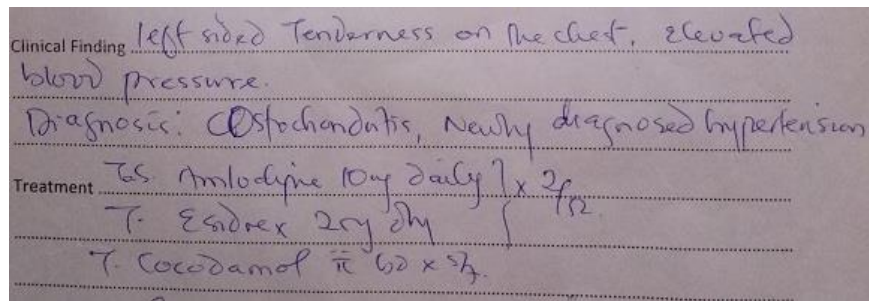 Clinical Finding left sided Tenderness on the chest, elevated
blood pressure.
Diagnosis: Costochondritis, Newly diagnosed hypertension
Treatment Tbs. Amlodipine 10mg daily } x 2/52
T. Esidrex 25mg dly
T. Cocodamol ii bd x 5/7.